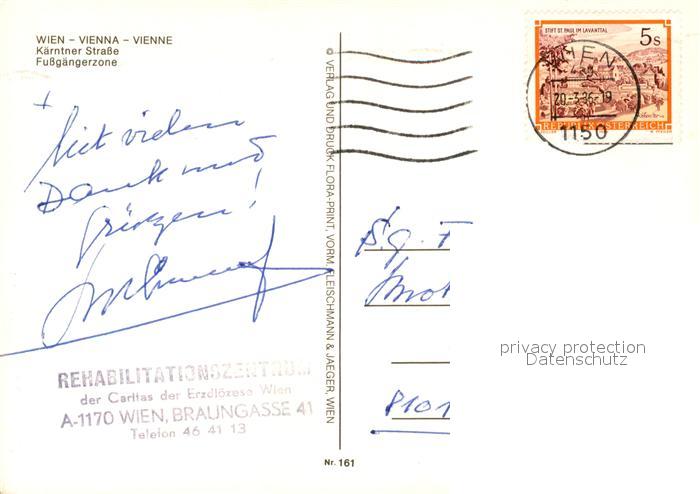 WIEN – VIENNA – VIENNE
Kärntner Straße
Fußgängerzone
Mit vielem
Dank und
Grüßen!
REHABILITATIONSZENTRUM
der Caritas der Erzdiözese Wien
A-1170 WIEN, BRAUNGASSE 41
Telefon 46 41 13
© VERLAG UND DRUCK FLORA-PRINT, VORM. FLEISCHMANN & JAEGER, WIEN
Nr. 161
STIFT ST. PAUL IM LAVANTTAL
5s
REPUBLIK ÖSTERREICH
WIEN
20.-3.86-19
1150
S.g. F
8101
privacy protection
Datenschutz